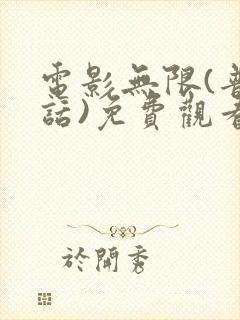 電影無限(普
話)免費觀看
於開秀